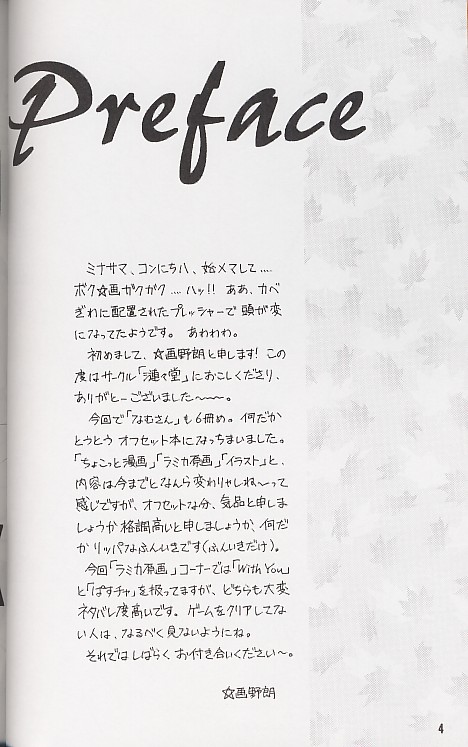 Preface
ミナサマ、コンにち八、始メマして‥‥
ボク☆画ガクガク‥‥ハッ!! ああ、カベ
ぎわに配置されたプレッシャーで頭が変
になってたようです。あわわわ。
初めまして、☆画野朗と申します!この
度はサークル「漣々堂」におこしくださり、
ありがとーございました〜〜〜。
今回で「なむさん」も6冊め。何だか
とうとうオフセット本になっちまいました。
「ちょこっと漫画」「ラミカ原画」「イラスト」と、
内容は今までとなんら変わりゃしね〜って
感じですが、オフセットな分、気品と申しま
しょうか格調高いと申しましょうか、何だ
かリッパなふんいきです(ふんいきだけ)。
今回「ラミカ原画」コーナーでは「With You」
と「ぱすチャ」を扱ってますが、どちらも大変
ネタバレ度高いです。ゲームをクリアしてな
い人は、なるべく見ないようにね。
それではしばらくお付き合いください〜。
☆画野朗
4